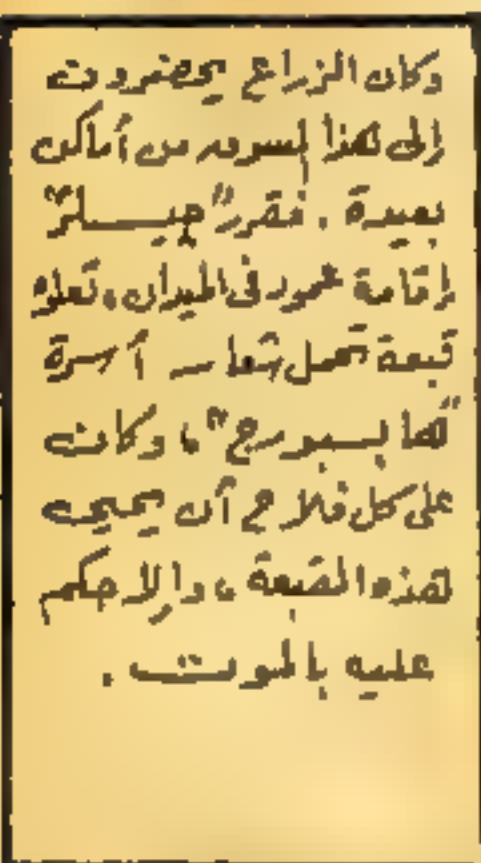 وكان الزراع يحضرون
إلى هذا السوق من أماكن
بعيدة . فقرر "جيسلر"
إقامة عمود فى الميدان ، تعلوه
قبعة تحمل شعار أسرة
"هابسبورج" ، وكان
على كل فلاح أن يحيى
هذه القبعة ، وإلا حكم
عليه بالموت .